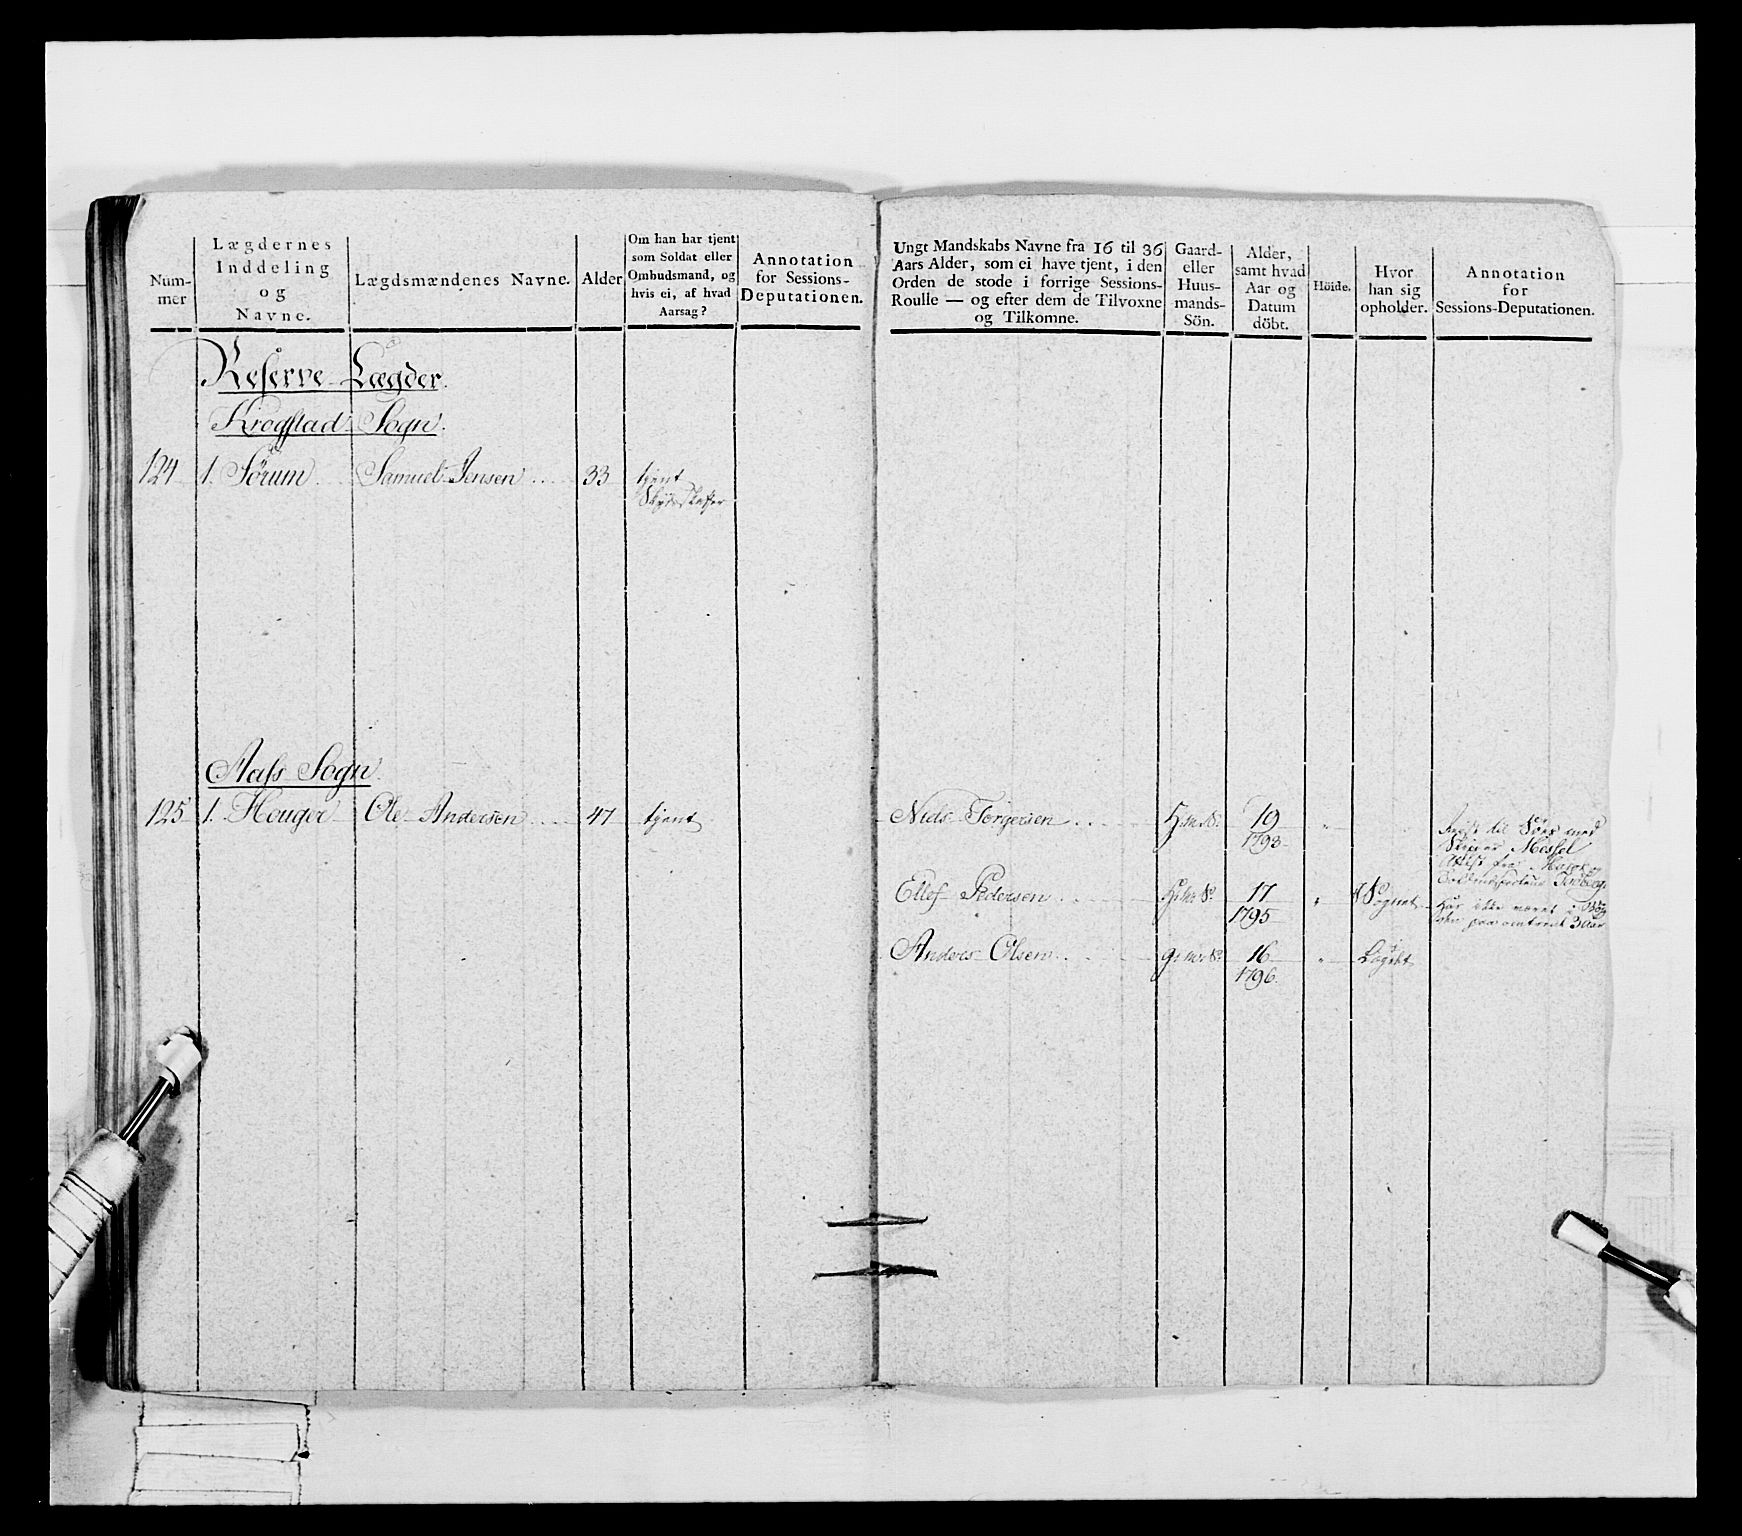 Num-
mer
Lægdernes
Inddeling
og
Navne.
Lægdsmændenes Navne.
Alder
Om han har tjent
som Soldat eller
Ombudsmand, og
hvis ei, af hvad
Aarsag?
Annotation
for Sessions-
Deputationen.
Reserve Lægder.
Krogstad Sogn.
124 1. Sørum Samuel Jensen 33 tjent
Aass Sogn.
125 1. Houger Ole Andersen 47 tjent
Ungt Mandskabs Navne fra 16 til 36
Aars Alder, som ei have tjent, i den
Orden de stode i forrige Sessions-
Roulle — og efter dem de Tilvoxne
og Tilkomne.
Gaard-
eller
Huus-
mands-
Sön.
Alder,
samt hvad
Aar og
Datum
döbt.
Höide.
Hvor
han sig
opholder.
Annotation
for
Sessions-Deputationen.
Niels Torgersen H:m:S: 19 "
1793
til Söes med
Skipper Messel
Attest fra
Ellef Pedersen H:m:S: 17 " i Sognet
1795
har ikke været i
paa omtrent 3 Aar
Anders Olsen G:m:S: 16 " Lægdet
1796.